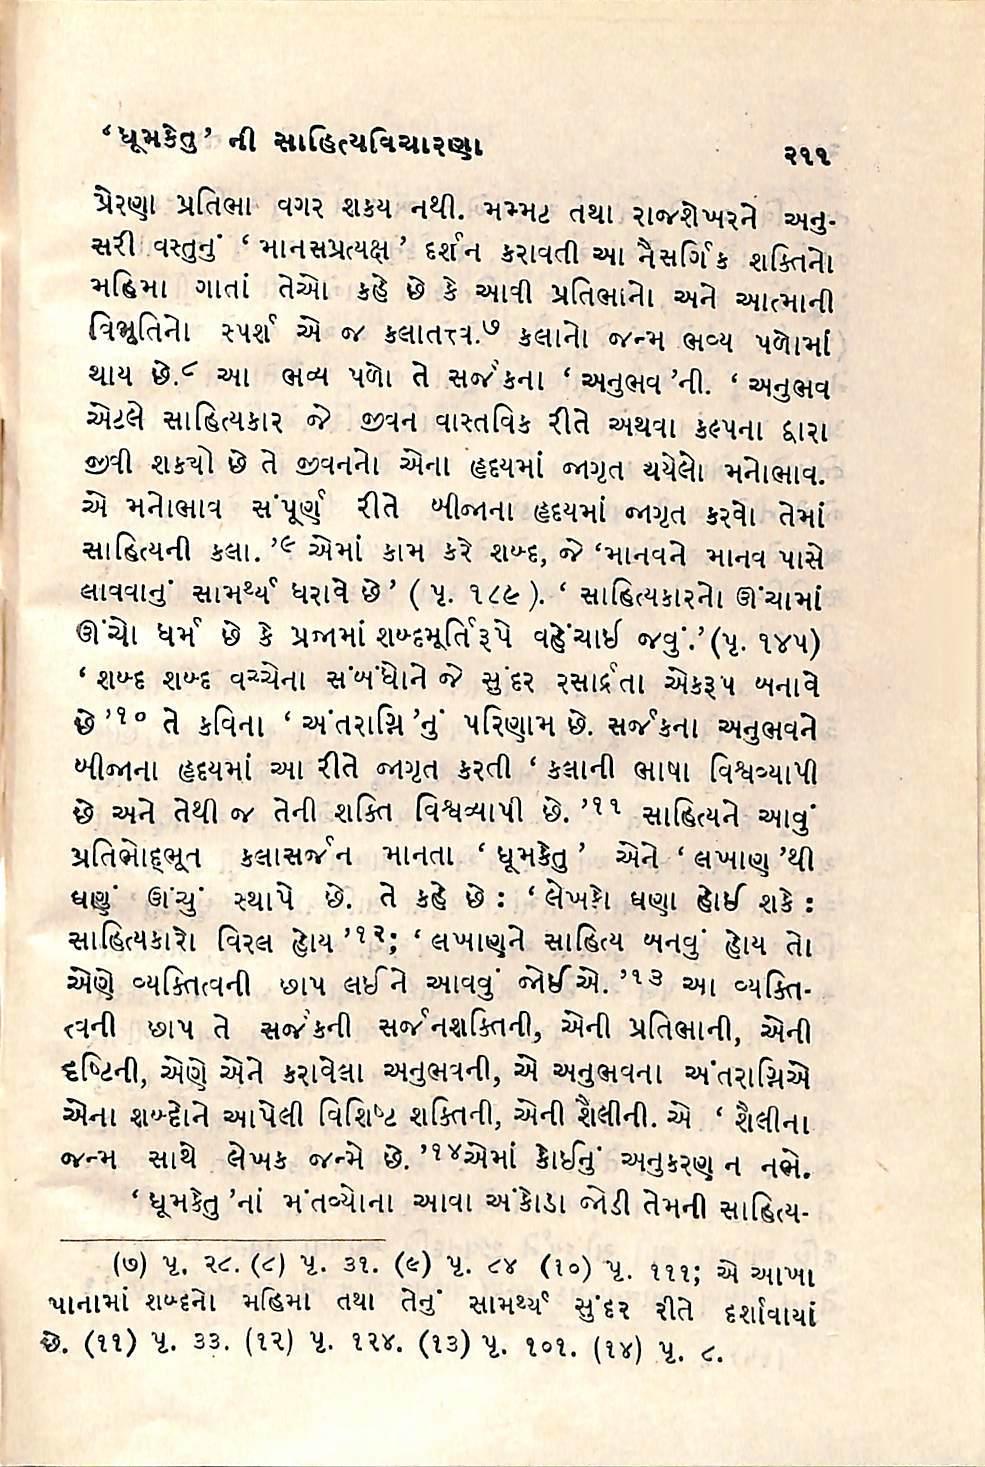 ‘ધૂમકેતુ’ ની સાહિત્યવિચારણા ૨૧૧
પ્રેરણા પ્રતિભા વગર શક્ય નથી. મમ્મટ તથા રાજશેખરને અનુ-
સરી વસ્તુનું ‘માનસપ્રત્યક્ષ’ દર્શન કરાવતી આ નૈસર્ગિક શક્તિનો
મહિમા ગાતાં તેઓ કહે છે કે આવી પ્રતિભાનો અને આત્માની
વિભૂતિનો સ્પર્શ એ જ કલાતત્ત્વ.૭ કલાનો જન્મ ભવ્ય પળોમાં
થાય છે.૮ આ ભવ્ય પળો તે સર્જકના ‘અનુભવ’ની. ‘અનુભવ
એટલે સાહિત્યકાર જે જીવન વાસ્તવિક રીતે અથવા કલ્પના દ્વારા
જીવી શક્યો છે તે જીવનનો એના હૃદયમાં જાગૃત થયેલો મનોભાવ.
એ મનોભાવ સંપૂર્ણ રીતે બીજાના હૃદયમાં જાગૃત કરવો તેમાં
સાહિત્યની કલા.’૯ એમાં કામ કરે શબ્દ, જે ‘માનવને માનવ પાસે
લાવવાનું સામર્થ્ય ધરાવે છે’ (પૃ. ૧૮૯). ‘સાહિત્યકારનો ઊંચામાં
ઊંચો ધર્મ છે કે પ્રજામાં શબ્દમૂર્તિરૂપે વહેંચાઈ જવું.’(પૃ. ૧૪૫)
‘શબ્દ શબ્દ વચ્ચેના સંબંધોને જે સુંદર રસાર્દ્રતા એકરૂપ બનાવે
છે’૧૦ તે કવિના ‘અંતરાગ્નિ’નું પરિણામ છે. સર્જકના અનુભવને
બીજાના હૃદયમાં આ રીતે જાગૃત કરતી ‘કલાની ભાષા વિશ્વવ્યાપી
છે અને તેથી જ તેની શક્તિ વિશ્વવ્યાપી છે.’૧૧ સાહિત્યને આવું
પ્રતિભોદ્ભૂત કલાસર્જન માનતા ‘ધૂમકેતુ’ એને ‘લખાણ’થી
ઘણું ઊંચું સ્થાપે છે. તે કહે છે : ‘લેખકો ઘણા હોઈ શકે :
સાહિત્યકારો વિરલ હોય’૧૨; ‘લખાણને સાહિત્ય બનવું હોય તો
એણે વ્યક્તિત્વની છાપ લઈને આવવું જોઈએ.’૧૩ આ વ્યક્તિ-
ત્વની છાપ તે સર્જકની સર્જનશક્તિની, એની પ્રતિભાની, એની
દૃષ્ટિની, એણે એને કરાવેલા અનુભવની, એ અનુભવના અંતરાગ્નિએ
એના શબ્દોને આપેલી વિશિષ્ટ શક્તિની, એની શૈલીની. એ ‘શૈલીના
જન્મ સાથે લેખક જન્મે છે.’૧૪એમાં કોઈનું અનુકરણ ન નભે.
‘ધૂમકેતુ’નાં મંતવ્યોના આવા અંકોડા જોડી તેમની સાહિત્ય-
(૭) પૃ. ૨૮. (૮) પૃ. ૩૧. (૯) પૃ. ૮૪ (૧૦) પૃ. ૧૧૧; એ આખા
પાનામાં શબ્દનો મહિમા તથા તેનું સામર્થ્ય સુંદર રીતે દર્શાવાયાં
છે. (૧૧) પૃ. ૩૩. (૧૨) પૃ. ૧૨૪. (૧૩) પૃ. ૧૦૧. (૧૪) પૃ. ૮.